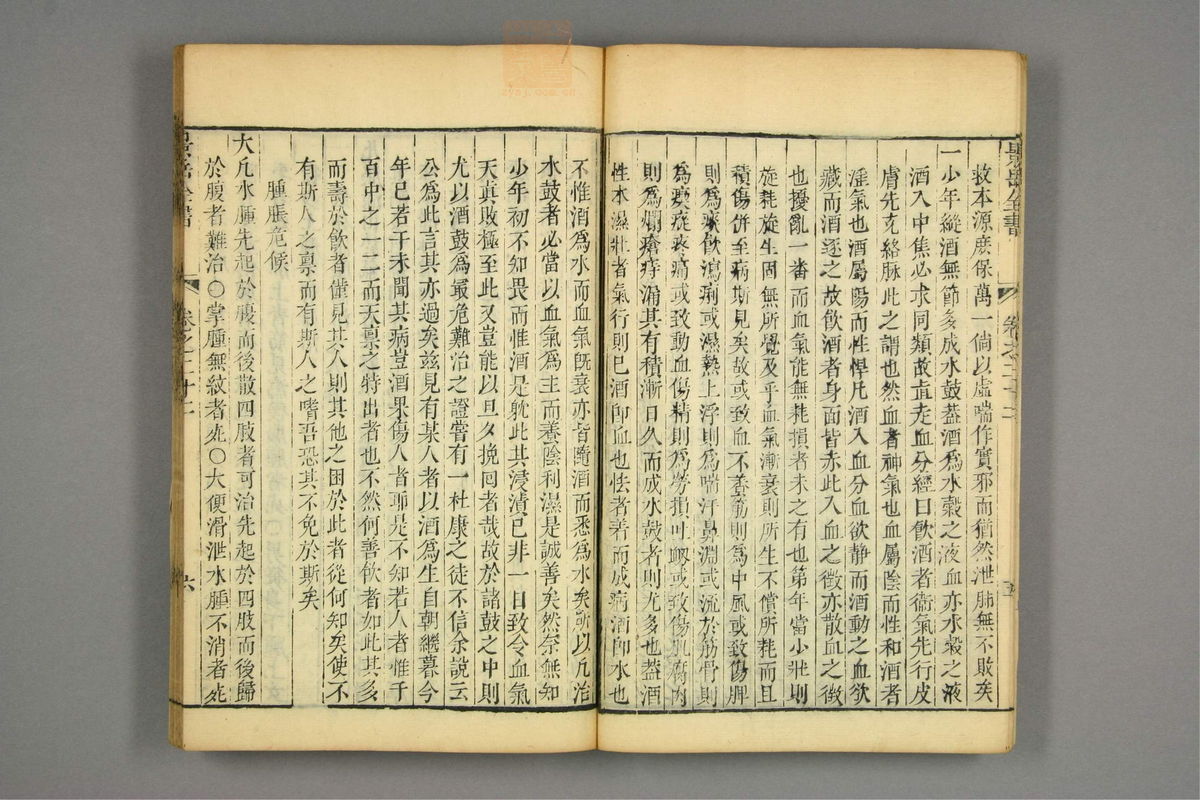 救本源庶保萬一倘以虛喘作實邪而猶然泄肺無不敗矣
一少年縱酒無節多成水鼓蓋酒爲水穀之液血亦水穀之液
酒入中焦必求同類故直走血分經曰飲酒者衞氣先行皮
膚先充絡脉此之謂也然血者神氣也血屬陰而性和酒者
淫氣也酒屬陽而性悍凡酒入血分血欲静而酒動之血欲
藏而酒逐之故飲酒者身面皆赤此入血之徵亦散血之徵
也擾亂一番而血氣能無耗損者未之有也第年當少壯則
旋耗旋生固無所覺及乎血氣漸衰則所生不償所耗而且
積傷併至病斯見矣故或致血不養筋則爲中風或致傷脾
則爲痰飲瀉痢或濕熱上浮則爲喘汗鼻淵或流於筋骨則
爲瘈瘲疼痛或致動血傷精則爲勞損吐衂或致傷肌腐肉
則爲爛瘡痔漏其有積漸日久而成水鼓者則尤多也葢酒
性本濕壯者氣行則已酒卽血也怯者著而成病酒卽水也
不惟酒爲水而血氣既衰亦皆隨酒而悉爲水矣所以凡治
水鼓者必當以血氣爲主而養陰利濕是誠善矣然奈無知
少年初不知畏而惟酒是躭此其浸漬已非一日致令血氣
天真敗極至此又豈能以旦夕挽囘者哉故於諸鼓之中則
尤以酒鼓爲最危難治之證嘗有一杜康之徒不信余說云
公爲此言其亦過矣兹見有某人者以酒爲生自朝繼暮今
年已若干未聞其病豈酒果傷人者耶是不知若人者惟千
百中之一二而天禀之特出者也不然何善飲者如此其多
而壽於飲者僅見其人則其他之困於此者從何知矣使不
有斯人之禀而有斯人之嗜吾恐其不免於斯矣
腫脹危候
大凡水腫先起於腹而後散四肢者可治先起於四肢而後歸
於腹者難治〇掌腫無紋者死〇大便滑泄水腫不消者死
景岳全書
卷之二十二
六